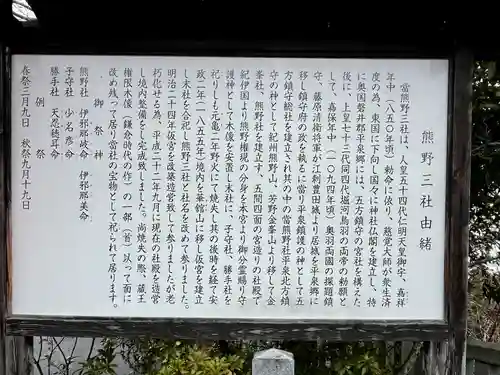 熊野三社由緒
当熊野三社は、人皇五十四代仁明天皇御宇、嘉祥
年中(八五〇年頃)勅命に依り、慈覚大師が衆生済
度の為、東国に下向し国々に神社仏閣を建立し、特
に奥国磐井郡平泉郷には、五方鎮守の宮社を構えた
後に、人皇七十三代同四代堀河鳥羽の両帝の勅願と
して、嘉保年中(一〇九四年頃)奥羽両国の探題鎮
守、藤原清衡将軍が江刺豊田城より居城を平泉郷に
移し鎮守府の政を執るに当り平泉鎮護の神として五
方鎮守総社を建立され其の中の当熊野社平泉北方鎮
守の神として紀州熊野山、芳野金峯山より移して金
峯社、熊野社を建立す、五間四面の宮造りの社殿で
紀伊国より熊野権現の分身を本宮より御分霊賜り守
護神として木像を安置し末社に、子守社、勝手社を
祀りしも元亀二年野火にて焼失し其の後時を経て安
政二年(一八五五年)境内を華館山に移し仮宮を建立
し末社を合祀し熊野三社と社名を改めて参りました。
明治二十四年仮宮を改築造営致して参りましたが老
朽化せる為、平成二十一年九月に現在の社殿を造営
し境内整備をし完成致しました。尚焼失の際、蔵王
権現木像(鎌倉時代の作)の一部(首)以って面に
改め残って居り当社の宝物として祀られて居ります。
御祭神
熊野社 伊邪那岐命 伊邪那美命
子守社 少名彦命
勝手社 天忍穂耳命
例祭
春祭三月九日 秋祭九月十九日